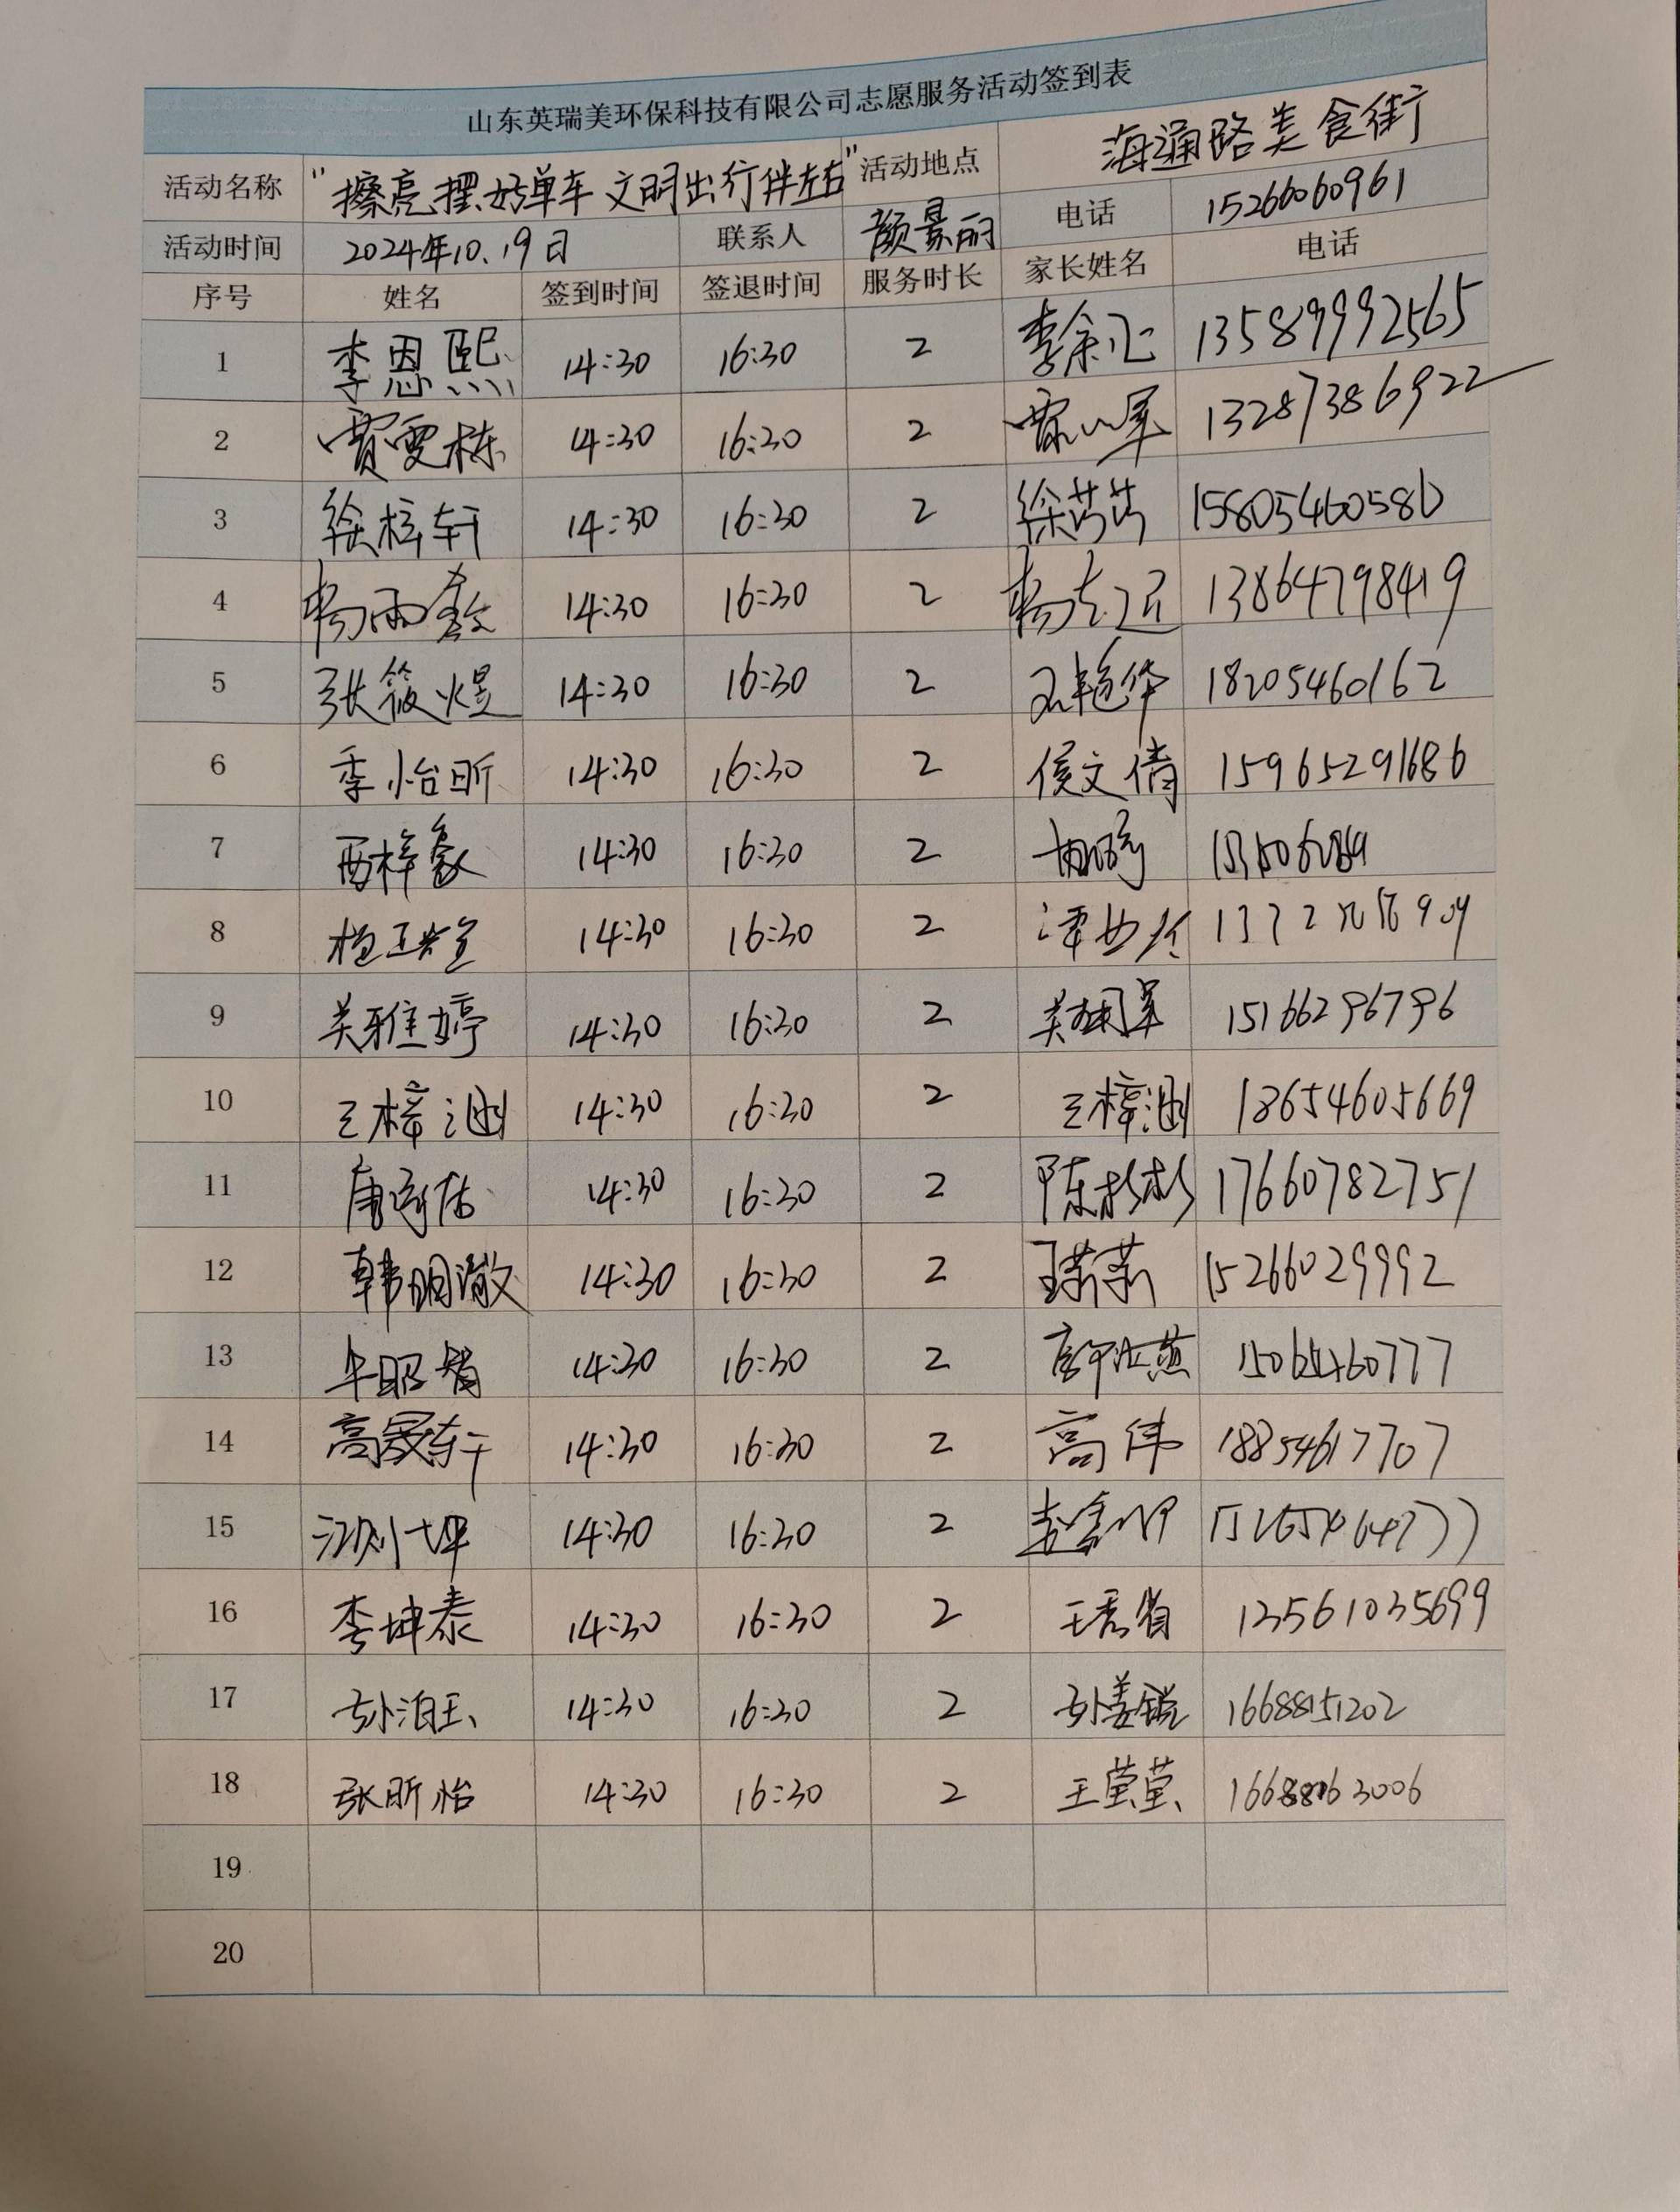 山东英瑞美环保科技有限公司志愿服务活动签到表
活动名称 "擦亮摆好单车 文明出行伴左右" 活动地点 海通路美食街
活动时间 2024年10.19日 联系人 颜景丽 电话 15266060961
序号 姓名 签到时间 签退时间 服务时长 家长姓名 电话
1 李恩熙 14:30 16:30 2 李余飞 13589992565
2 贾雯栋 14:30 16:30 2 13287386922
3 徐梓轩 14:30 16:30 2 徐芳芳 15805460586
4 杨雨鑫 14:30 16:30 2 杨志远 13864798419
5 张筱煜 14:30 16:30 2 王艳华 18205460162
6 季怡昕 14:30 16:30 2 侯文倩 15965291686
7 西梓豪 14:30 16:30 2
8 14:30 16:30 2
9 关雅婷 14:30 16:30 2 15166296796
10 王梓涵 14:30 16:30 2 王梓涵 18654605669
11 14:30 16:30 2 陈彬彬 17660782751
12 韩明澈 14:30 16:30 2 王萧萧 15266029992
13 牟昭睿 14:30 16:30 2 15065460777
14 高晟轩 14:30 16:30 2 高伟 18854617707
15 14:30 16:30 2
16 李坤泰 14:30 16:30 2 王秀省 13561035699
17 孙泊玉 14:30 16:30 2 孙姜锐 16688151202
18 张昕怡 14:30 16:30 2 王莹莹 16688163006
19
20